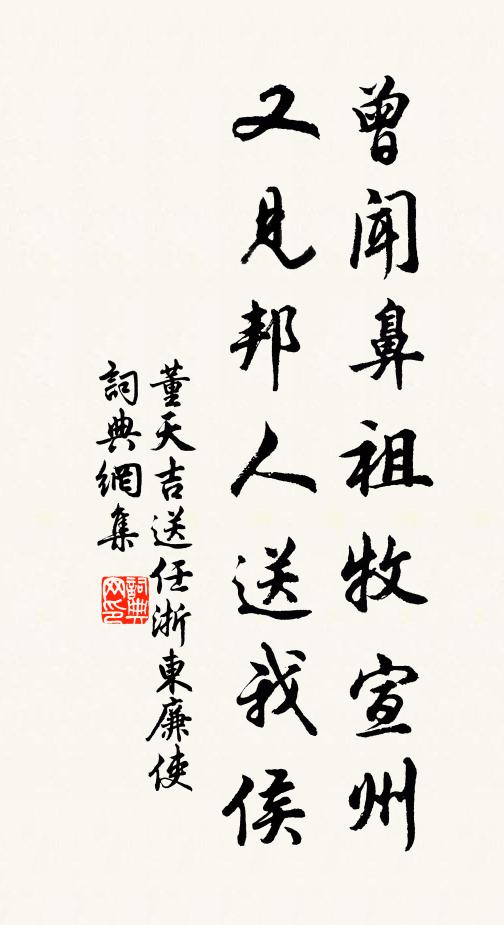 曾聞鼻祖牧宣州
又見邦人送我侯
董天吉送任浙東廉使
詞典網集
詞典网印